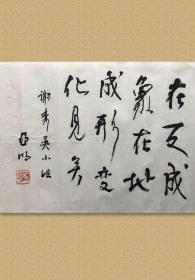 在天成
象在地
成形变
化見矣
谢秀英小姐
亚明